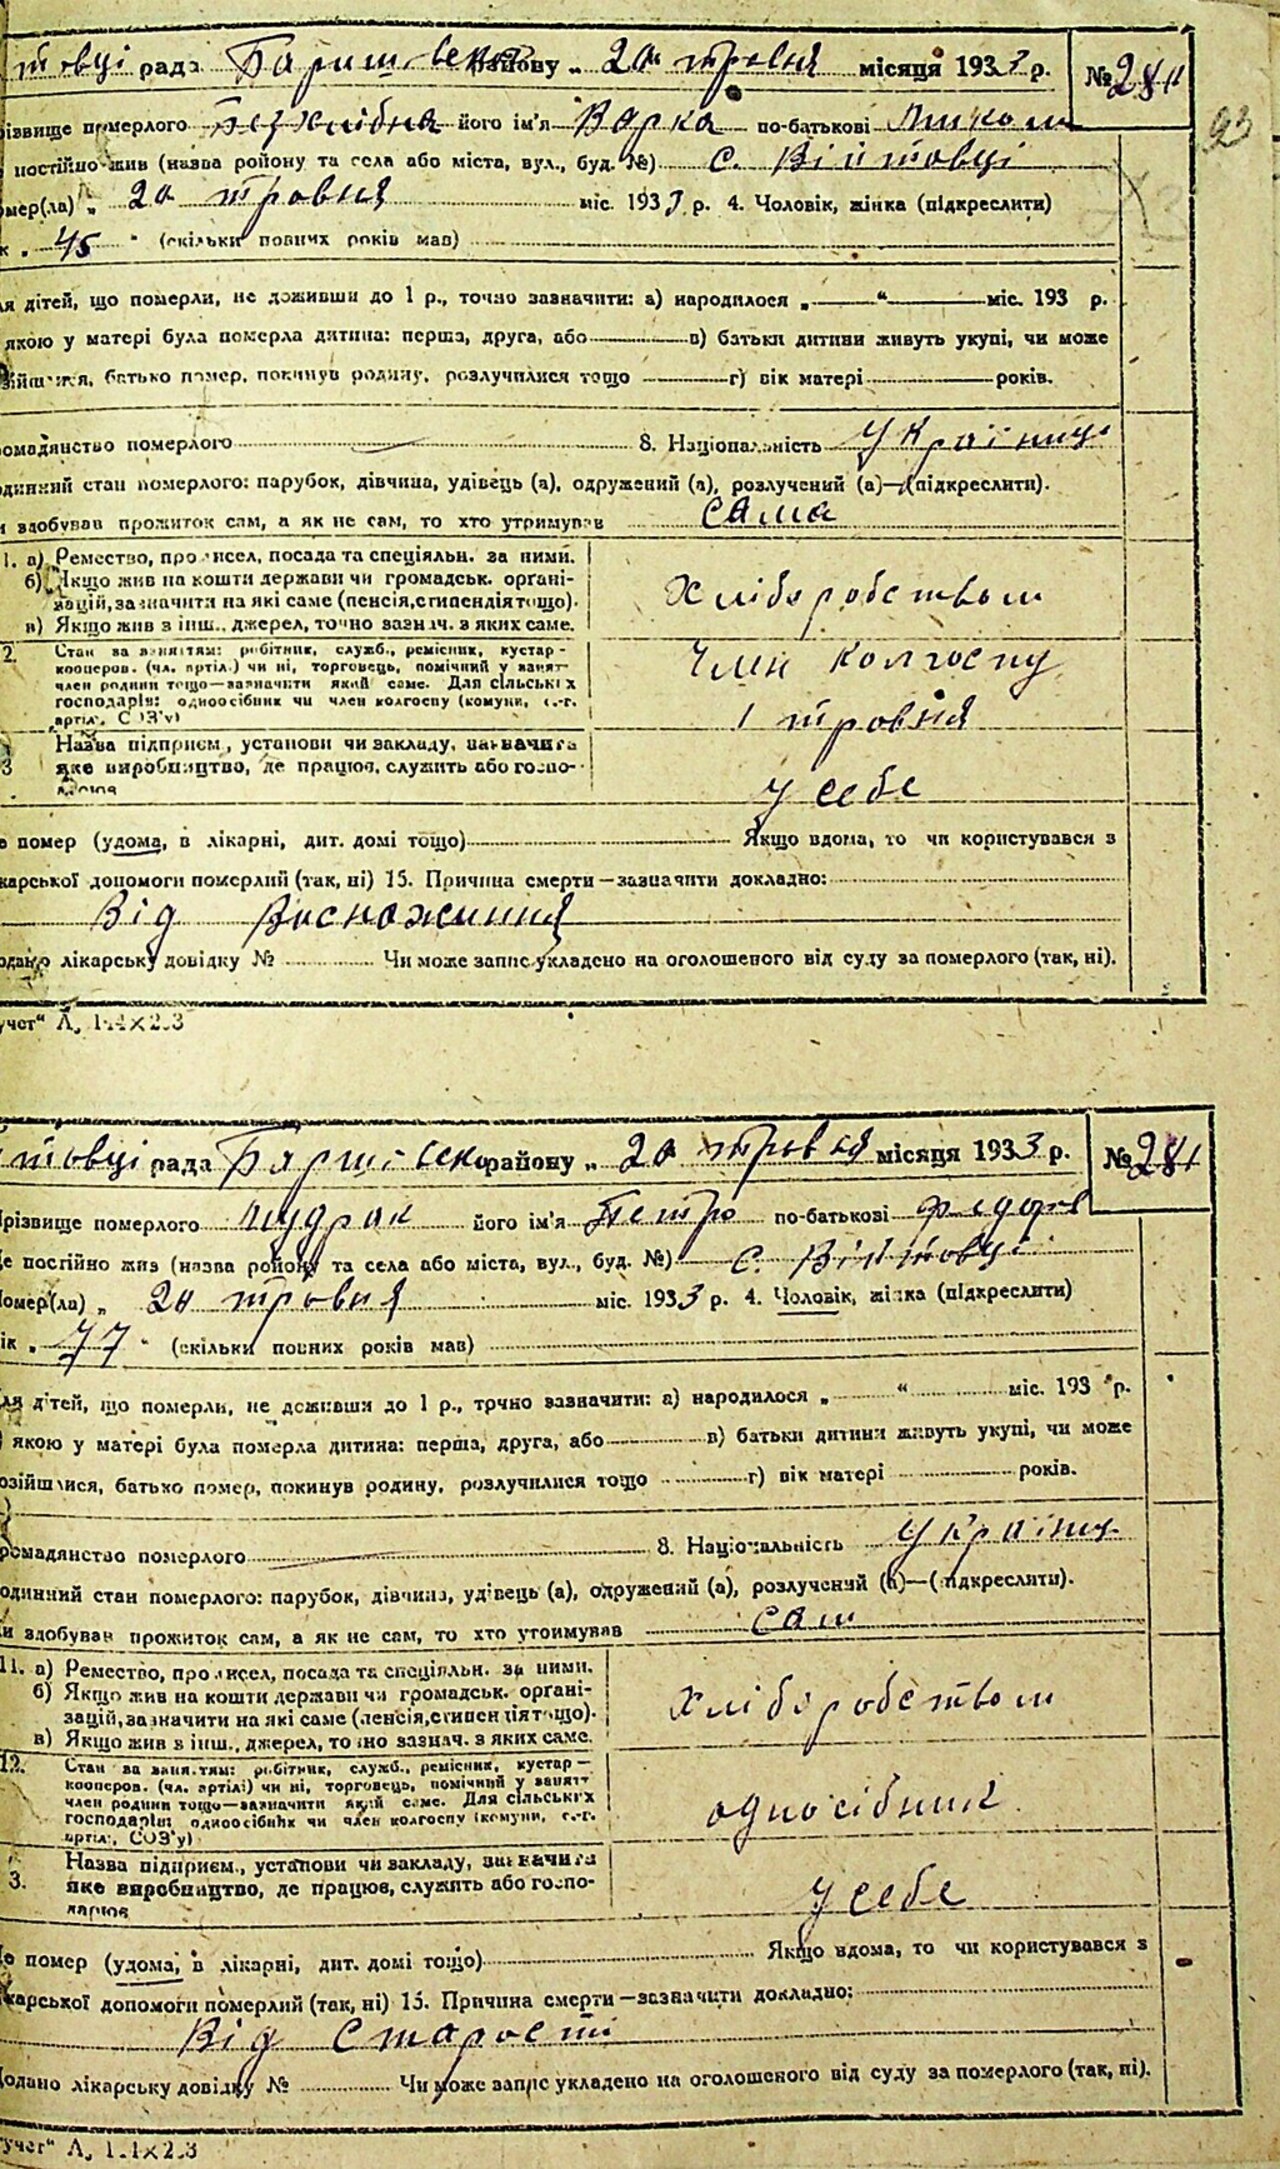 товці рада Баришівськ району „ 20 " травня місяця 1933 р. №
різвище померлого Безхлібна його ім'я Варка по-батькові Микол
постійно жив (назва ройону та села або міста, вул., буд. №) с. Війтовці
93
омер(ла) „ 20 травня міс. 1933 р. 4. Чоловік, жінка (підкреслити)
к „ 45 " (скільки повних років мав)
ля дітей, що померли, не доживши до 1 р., точно зазначити: а) народилося „ — " — міс. 193 р.
якою у матері була померла дитина: перша, друга, або — в) батьки дитини живуть укупі, чи може
зійшлися, батько помер, покинув родину, розлучилися тощо — г) вік матері — років.
ромадянство померлого — 8. Національність Україниця
одинний стан померлого: парубок, дівчина, удівець (а), одружений (а), розлучений (а)—(підкреслити).
и здобував прожиток сам, а як не сам, то хто утримував сама
1. а) Ремество, промисел, посада та спеціяльн. за ними.
б) Якщо жив на кошти держави чи громадськ. органі-
зацій, зазначити на які саме (пенсія, стипендія тощо).
в) Якщо жив з інш., джерел, точно зазнач. з яких саме.
Хліборобством
2. Стан за заняттям: робітник, служб., ремісник, кустар-
кооперов. (чл. артілі) чи ні, торговець, помічний у занят-
член родини тощо—зазначити який саме. Для сільських
господарів: одноосібник чи член колгоспу (комуни, с.-г.
артілі, СОЗ'у)
Член колгоспу
1 травня
3 Назва підприєм., установи чи закладу, зазначити
яке виробництво, де працює, служить або госпо-
дарює
У себе
е помер (удома, в лікарні, дит. домі тощо) Якщо вдома, то чи користувався з
карської допомоги померлий (так, ні) 15. Причина смерти—зазначити докладно:
Від Виснаження
одано лікарську довідку № Чи може запис укладено на оголошеного від суду за померлого (так, ні).
учет" А, 144×203
товці рада Баришівськ району „ 20 травня місяця 1933 р. № 281
Прізвище померлого Шудрак його ім'я Петро по-батькові Федоров
Де постійно жив (назва ройону та села або міста, вул., буд. №) с. Війтовці
Помер(ла) „ 20 травня міс. 1933 р. 4. Чоловік, жінка (підкреслити)
ік „ 77 " (скільки повних років мав)
Для дітей, що померли, не доживши до 1 р., точно зазначити: а) народилося „ " міс. 193 р.
якою у матері була померла дитина: перша, друга, або — в) батьки дитини живуть укупі, чи може
озійшлися, батько помер, покинув родину, розлучилися тощо г) вік матері років.
ромадянство померлого — 8. Національність Українець
одинний стан померлого: парубок, дівчина, удівець (а), одружений (а), розлучений (а)—(підкреслити).
и здобував прожиток сам, а як не сам, то хто утримував сам
11. а) Ремество, промисел, посада та спеціяльн. за ними.
б) Якщо жив на кошти держави чи громадськ. органі-
зацій, зазначити на які саме (пенсія, стипендія тощо).
в) Якщо жив з інш., джерел, точно зазнач. з яких саме.
Хліборобством
12. Стан за заняттям: робітник, служб., ремісник, кустар—
кооперов. (чл. артілі) чи ні, торговець, помічний у занятт
член родини тощо—зазначити який саме. Для сільських
господарів: одноосібник чи член колгоспу (комуни, с.-г.
артілі, СОЗ'у)
одноосібник
3. Назва підприєм., установи чи закладу, зазначити
яке виробництво, де працює, служить або госпо-
дарює
У себе
Де помер (удома, в лікарні, дит. домі тощо) Якщо вдома, то чи користувався з
карської допомоги померлий (так, ні) 15. Причина смерти—зазначити докладно:
Від Старости
Додано лікарську довідку № Чи може запис укладено на оголошеного від суду за померлого (так, ні).
учет" А,